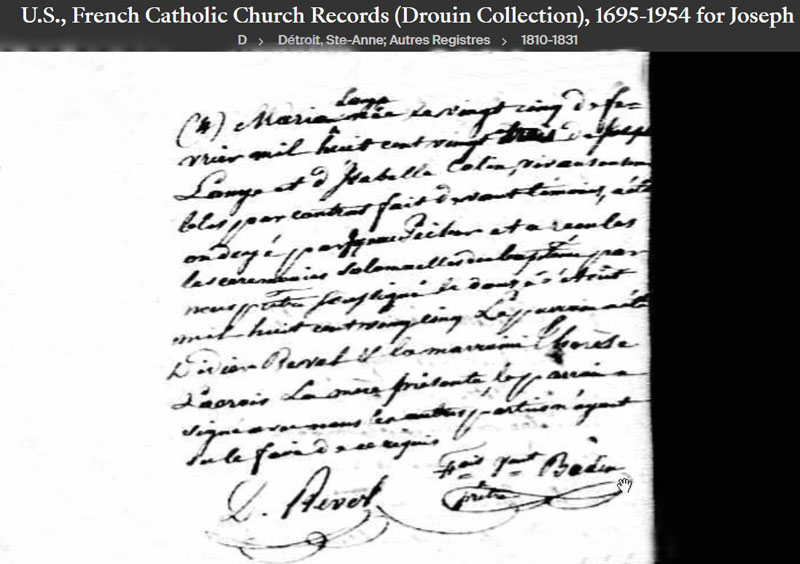 U.S., French Catholic Church Records (Drouin Collection), 1695-1954 for Joseph
D > Détroit, Ste-Anne; Autres Registres > 1810-1831
Lange
(4) Maria née le vingt cinq de fe=
vrier mil huit cent vingt trois de Joseph
Lange et d'Isabelle Colin, vivans
par contrat fait devant témoins, a été
ondoyé par et a recu les
les ceremonies solemnelles du baptême par
nous prêtre soussigné le douze d'Août
mil huit cent vingt cinq Le parrain a été
Didier Revel & la marraine Thérèse
Lacroix La mère présente le parrain a
signé avec nous les autres parties n'ayant
su le faire de ce requis
D. Revel
Fois Vnt Badin
prêtre